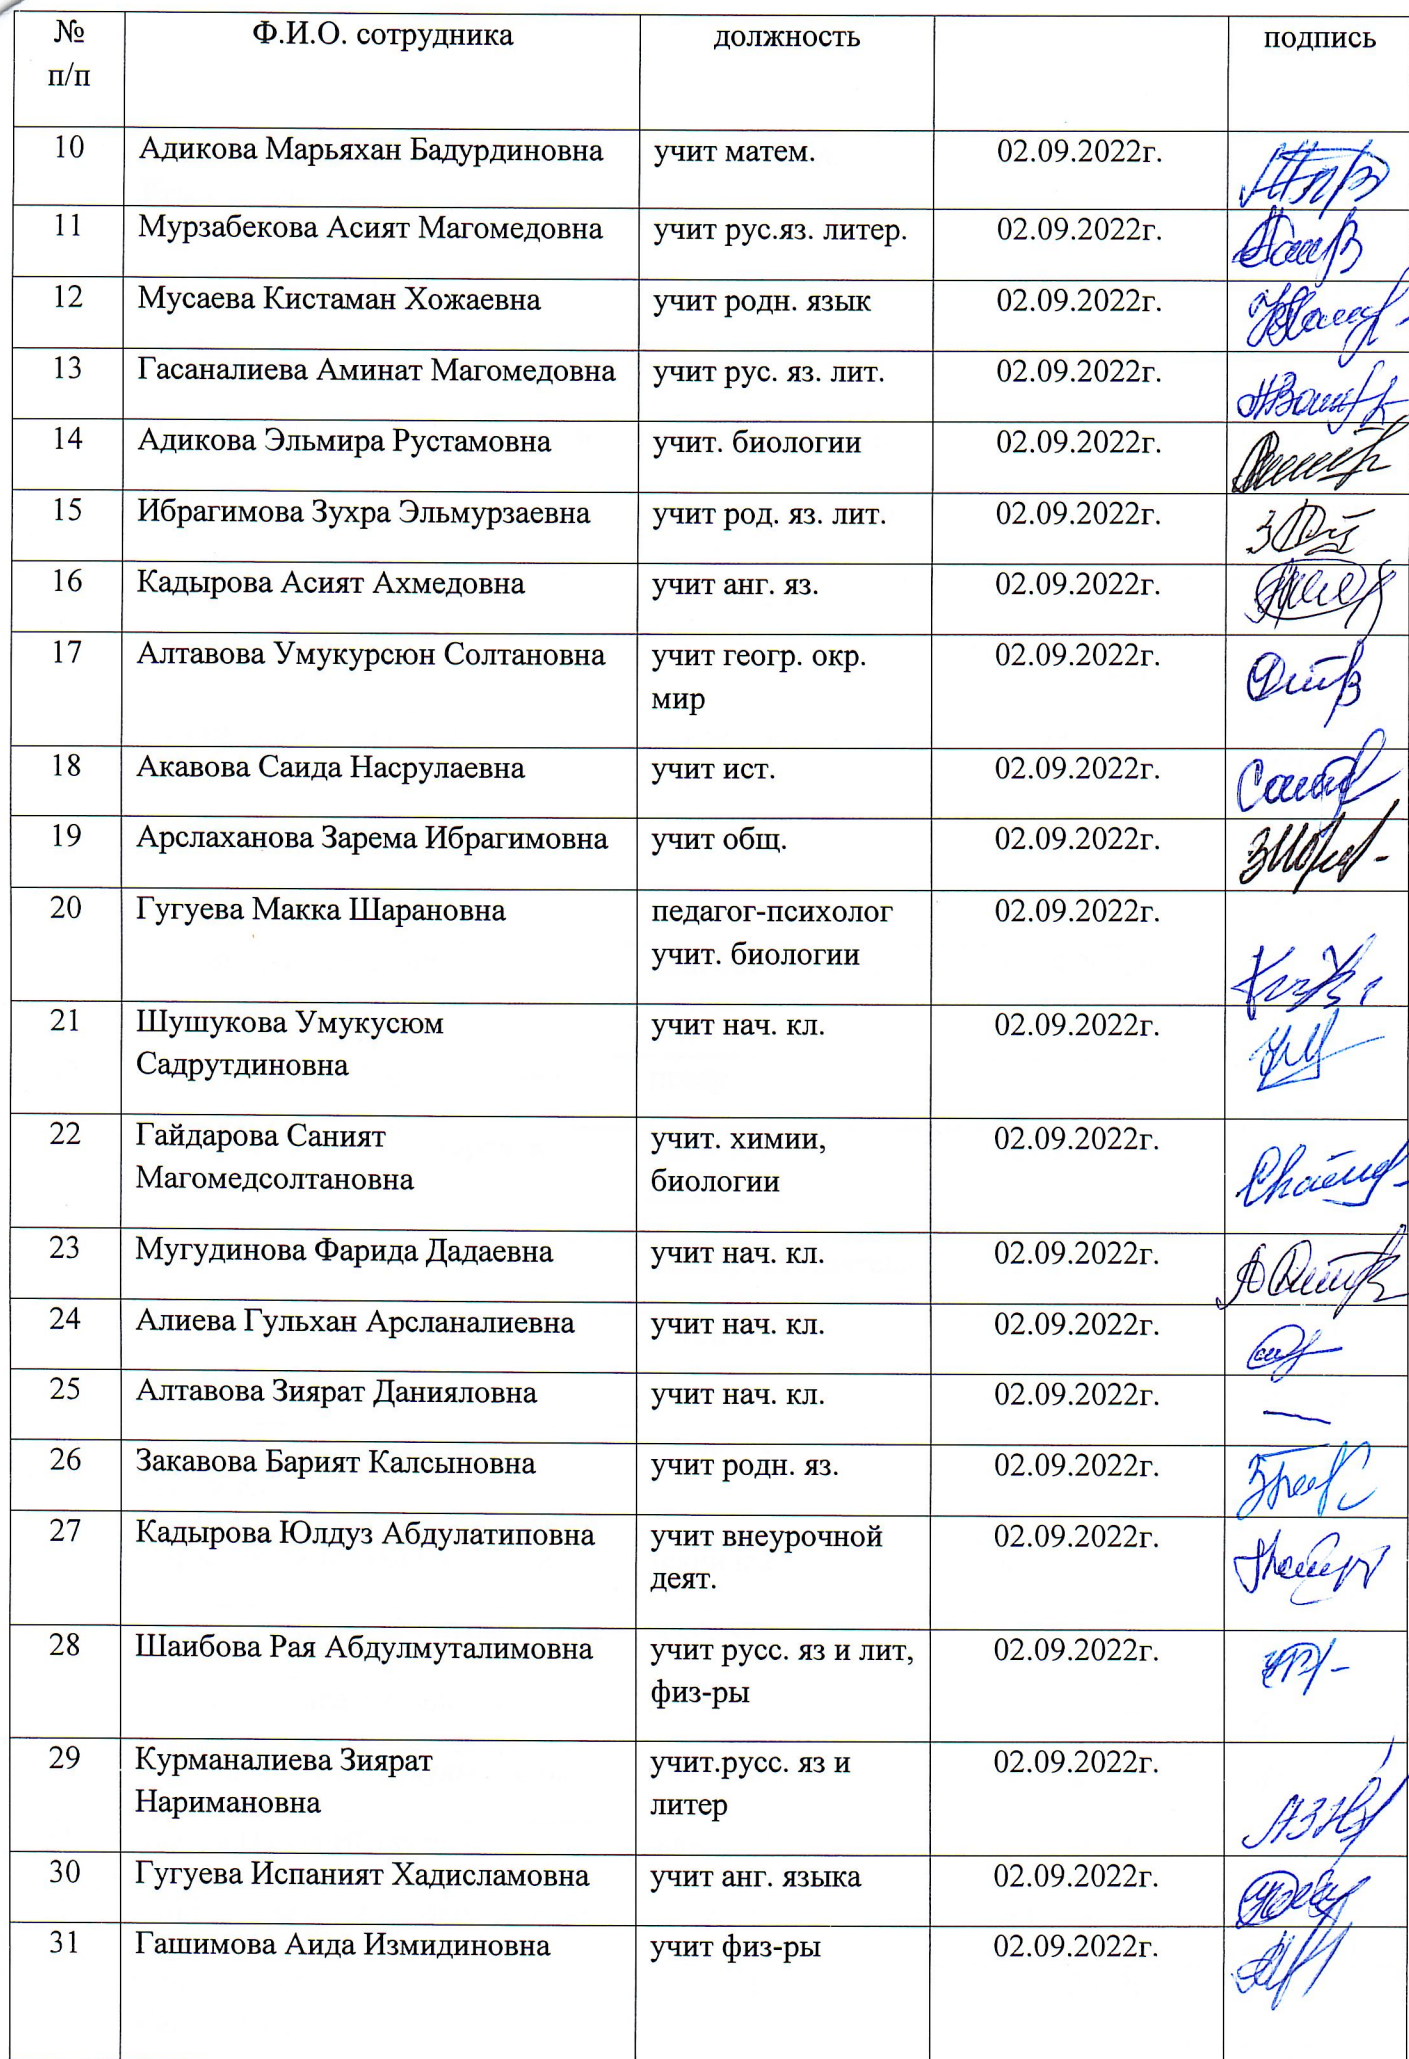 № Ф.И.О. сотрудника должность подпись
п/п
10 Адикова Марьяхан Бадурдиновна учит матем. 02.09.2022г.
11 Мурзабекова Асият Магомедовна учит рус.яз. литер. 02.09.2022г.
12 Мусаева Кистаман Хожаевна учит родн. язык 02.09.2022г.
13 Гасаналиева Аминат Магомедовна учит рус. яз. лит. 02.09.2022г.
14 Адикова Эльмира Рустамовна учит. биологии 02.09.2022г.
15 Ибрагимова Зухра Эльмурзаевна учит род. яз. лит. 02.09.2022г.
16 Кадырова Асият Ахмедовна учит анг. яз. 02.09.2022г.
17 Алтавова Умукурсюн Солтановна учит геогр. окр. 02.09.2022г.
мир
18 Акавова Саида Насрулаевна учит ист. 02.09.2022г.
19 Арслаханова Зарема Ибрагимовна учит общ. 02.09.2022г.
20 Гугуева Макка Шарановна педагог-психолог 02.09.2022г.
учит. биологии
21 Шушукова Умукусюм учит нач. кл. 02.09.2022г.
Садрутдиновна
22 Гайдарова Саният учит. химии, 02.09.2022г.
Магомедсолтановна биологии
23 Мугудинова Фарида Дадаевна учит нач. кл. 02.09.2022г.
24 Алиева Гульхан Арсланалиевна учит нач. кл. 02.09.2022г.
25 Алтавова Зиярат Данияловна учит нач. кл. 02.09.2022г.
26 Закавова Барият Калсыновна учит родн. яз. 02.09.2022г.
27 Кадырова Юлдуз Абдулатиповна учит внеурочной 02.09.2022г.
деят.
28 Шаибова Рая Абдулмуталимовна учит русс. яз и лит, 02.09.2022г.
физ-ры
29 Курманалиева Зиярат учит.русс. яз и 02.09.2022г.
Наримановна литер
30 Гугуева Испаният Хадисламовна учит анг. языка 02.09.2022г.
31 Гашимова Аида Измидиновна учит физ-ры 02.09.2022г.